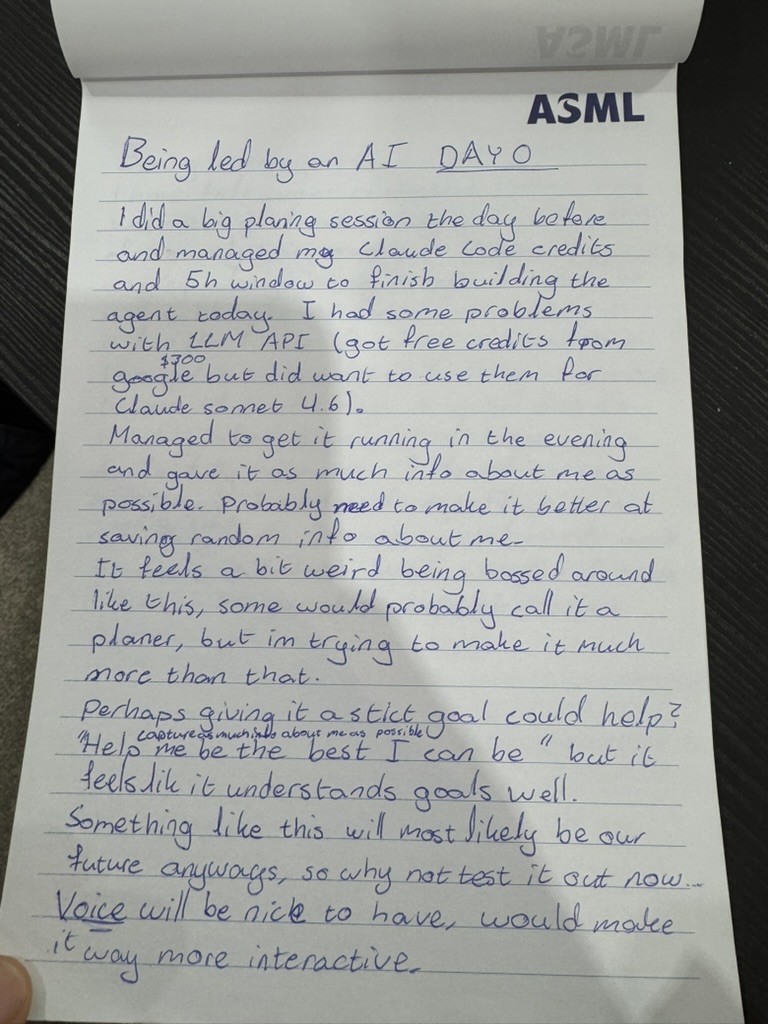 ASML
Being led by an AI DAY 0
I did a big planing session the day before
and managed my Claude Code credits
and 5h window to finish building the
agent today. I had some problems
with LLM API (got free credits from
$300
google but did want to use them for
Claude sonnet 4.6).
Managed to get it running in the evening
and gave it as much info about me as
possible. Probably need to make it better at
saving random info about me.
It feels a bit weird being bossed around
like this, some would probably call it a
planer, but im trying to make it much
more than that.
Perhaps giving it a stict goal could help?
capture as much info about me as possible
"Help me be the best I can be" but it
feels lik it understands goals well.
Something like this will most likely be our
future anyways, so why not test it out now...
Voice will be nice to have, would make
it way more interactive.